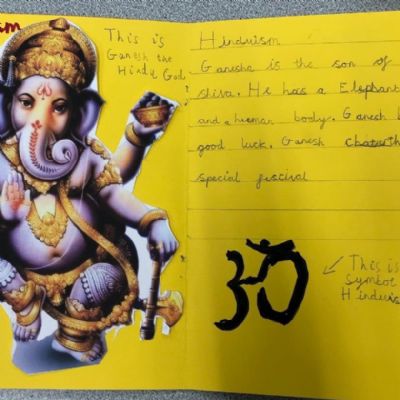 This is
Ganesh the
Hindu God
Hinduism
Ganesha is the son of
shiva. He has a Elephant
and a human body. Ganesh
good luck. Ganesh
special fescival
ॐ
This is
Symbol